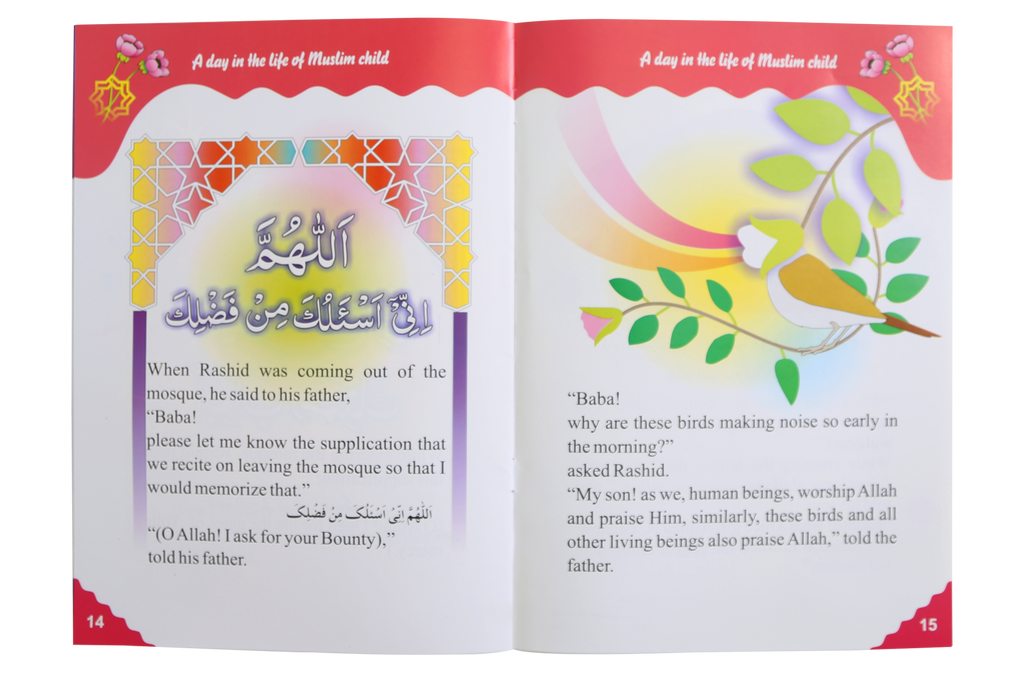 A day in the life of Muslim child
اَللّٰهُمَّ
اِنِّیْ اَسْئَلُكَ مِنْ فَضْلِكَ
When Rashid was coming out of the
mosque, he said to his father,
“Baba!
please let me know the supplication that
we recite on leaving the mosque so that I
would memorize that.”
اَللّٰهُمَّ اِنِّیْ اَسْئَلُكَ مِنْ فَضْلِكَ
“(O Allah! I ask for your Bounty),”
told his father.
14
A day in the life of Muslim child
“Baba!
why are these birds making noise so early in
the morning?”
asked Rashid.
“My son! as we, human beings, worship Allah
and praise Him, similarly, these birds and all
other living beings also praise Allah,” told the
father.
15